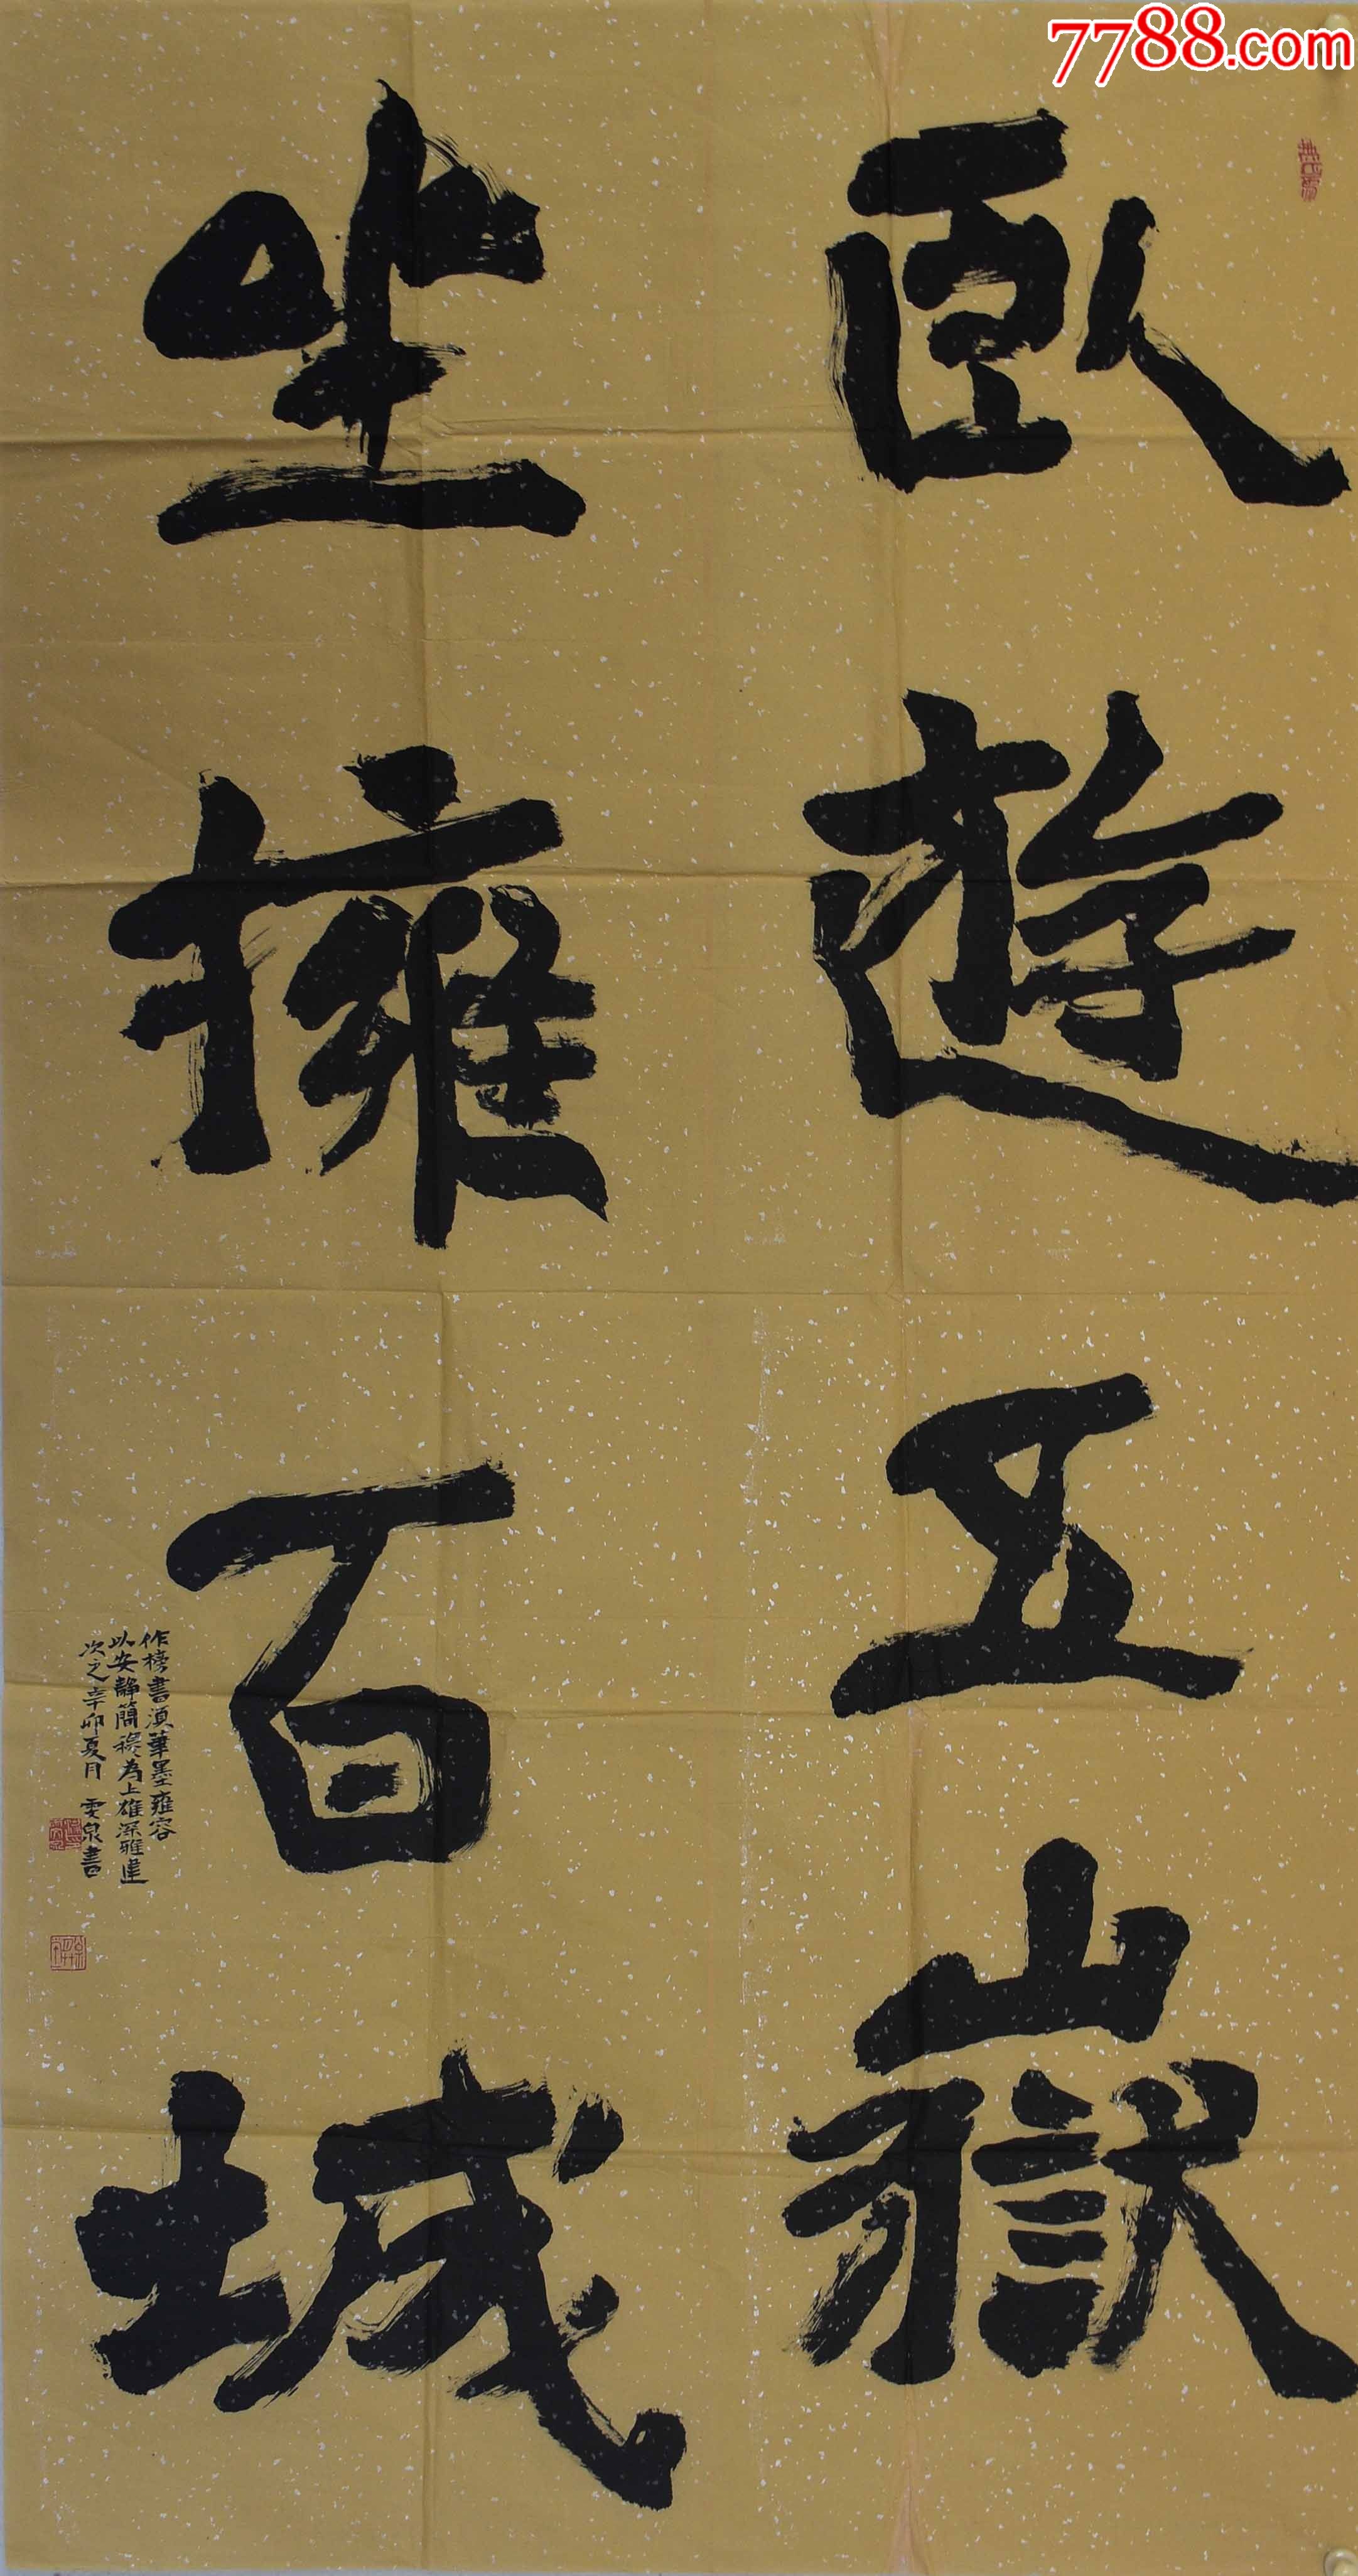 7788.com
臥遊五嶽
坐擁百城
作榜書須筆墨雍容
以安靜簡穆為上雄深雅健
次之辛卯夏月 雯泉書